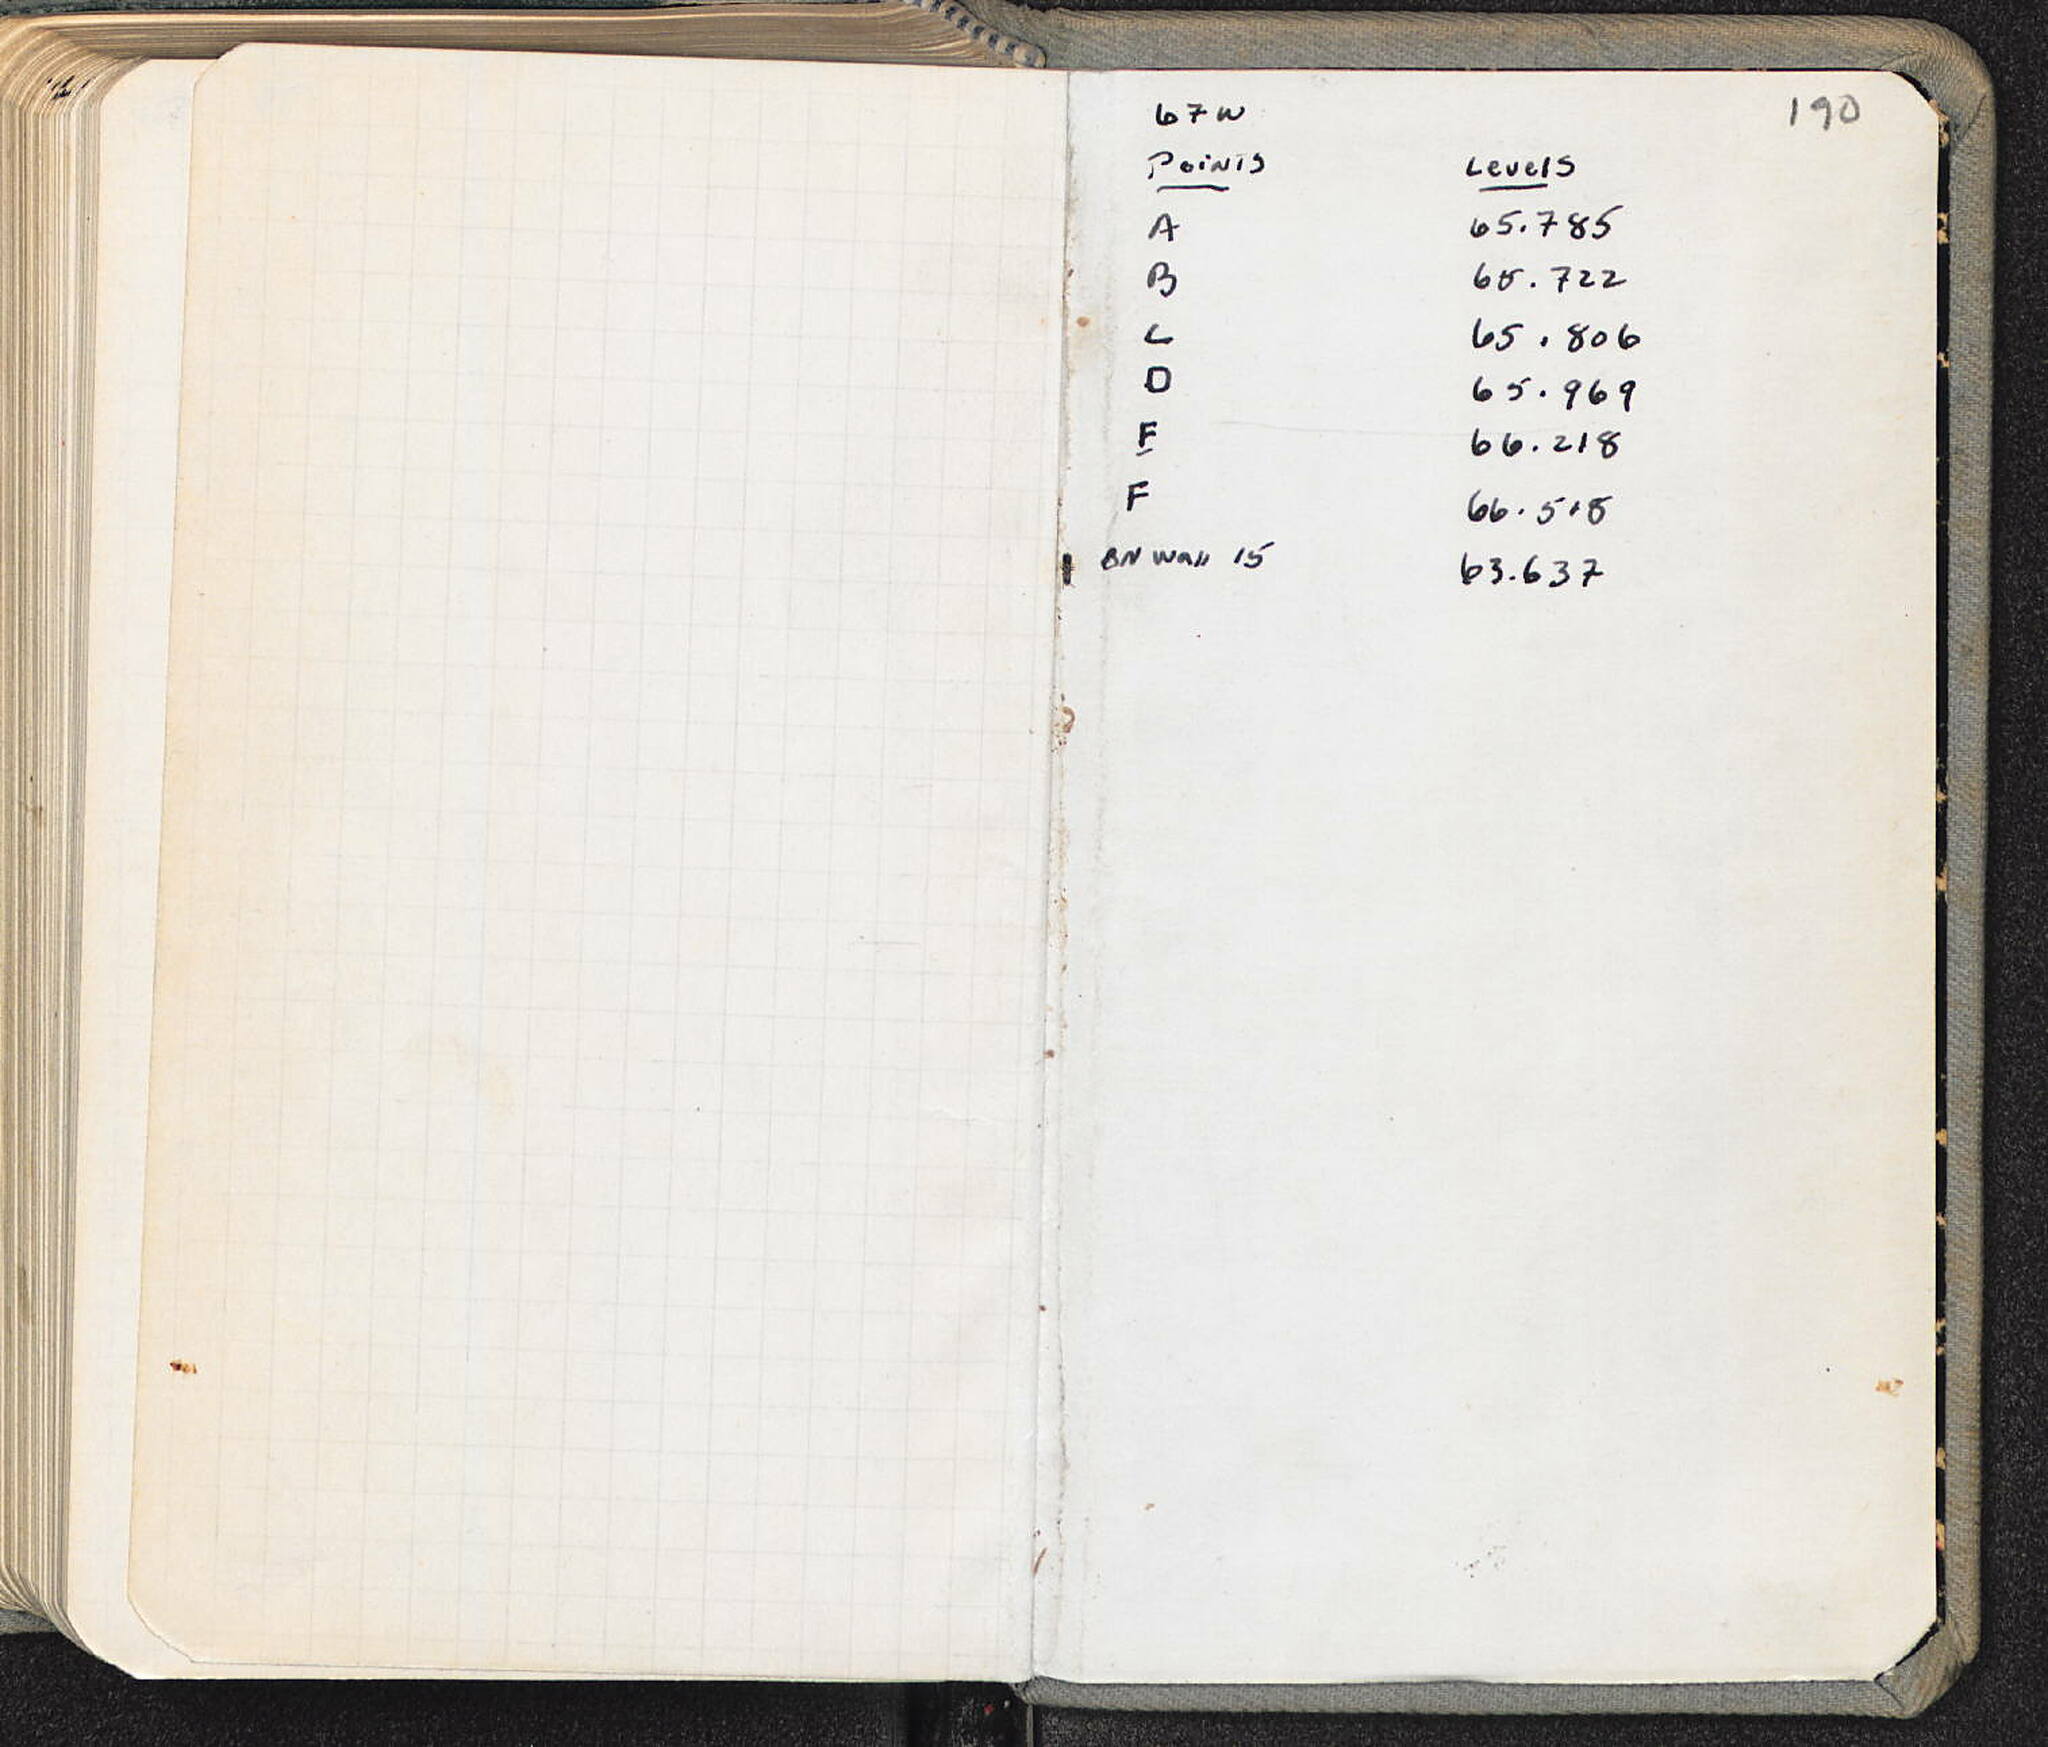 190
67W
Points Levels
A 65.785
B 65.722
C 65.806
D 65.969
E 66.218
F 66.518
BN Wall 15 63.637